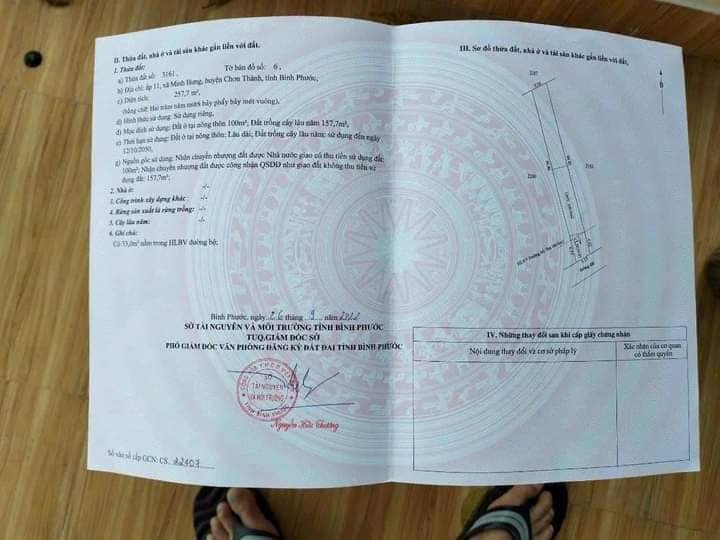 II. Thửa đất, nhà ở và tài sản khác gắn liền với đất.
1. Thửa đất:
a) Thửa đất số: 3161, Tờ bản đồ số: 6,
b) Địa chỉ: ấp 11, xã Minh Hưng, huyện Chơn Thành, tỉnh Bình Phước,
c) Diện tích: 257,7 m²,
(bằng chữ: Hai trăm năm mươi bảy phẩy bảy mét vuông),
d) Hình thức sử dụng: Sử dụng riêng,
đ) Mục đích sử dụng: Đất ở tại nông thôn 100m²; Đất trồng cây lâu năm 157,7m²,
e) Thời hạn sử dụng: Đất ở tại nông thôn: Lâu dài; Đất trồng cây lâu năm: sử dụng đến ngày
12/10/2050,
g) Nguồn gốc sử dụng: Nhận chuyển nhượng đất được Nhà nước giao có thu tiền sử dụng đất:
100m²; Nhận chuyển nhượng đất được công nhận QSDĐ như giao đất không thu tiền sử
dụng đất: 157,7m²;
2. Nhà ở: -/-
3. Công trình xây dựng khác: -/-
4. Rừng sản xuất là rừng trồng: -/-
5. Cây lâu năm: -/-
6. Ghi chú:
Có 33,0m² nằm trong HLBV đường bộ;
Bình Phước, ngày 26 tháng 9 năm
SỞ TÀI NGUYÊN VÀ MÔI TRƯỜNG TỈNH BÌNH PHƯỚC
TUQ.GIÁM ĐỐC SỞ
PHÓ GIÁM ĐỐC VĂN PHÒNG ĐĂNG KÝ ĐẤT ĐAI TỈNH BÌNH PHƯỚC
SỞ
TÀI NGUYÊN
VÀ MÔI TRƯỜNG
TỈNH BÌNH PHƯỚC
Nguyễn Hữu Chương
Số vào sổ cấp GCN: CS 22407
III. Sơ đồ thửa đất, nhà ở và tài sản khác gắn liền với đất.
B
IV. Những thay đổi sau khi cấp giấy chứng nhận
Nội dung thay đổi và cơ sở pháp lý
Xác nhận của cơ quan
có thẩm quyền